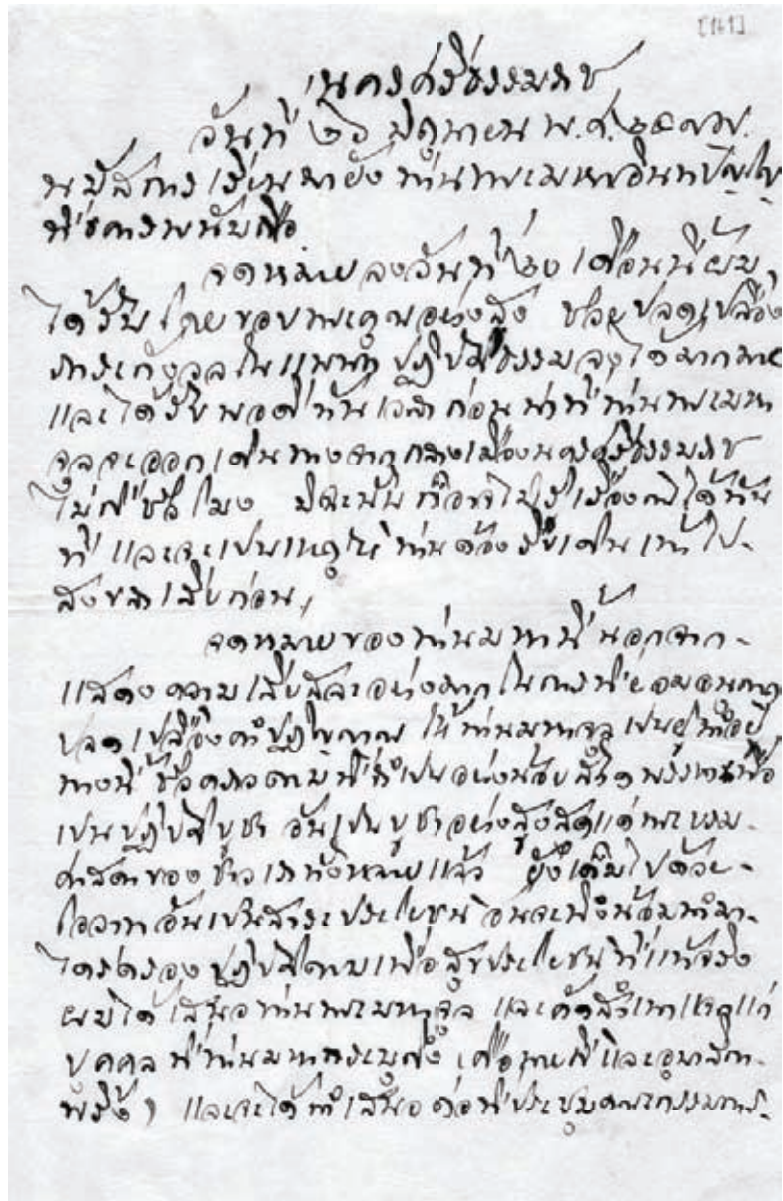 [141]
นครศรีธรรมราช
วันที่ ๒๖ มิถุนายน พ.ศ. ๒๔๗๗.
นมัสการ เรียนมายัง ท่านพระมหาอินทปัญโญ
ที่เคารพนับถือ
จดหมายลงวันที่ ๒๐ เดือนนี้ ผม
ได้รับโดยขอบพระคุณอย่างสูง ช่วยปลดเปลื้อง
ภาระกังวลในแผนก ปฏิบัติธรรมลงได้มากมาย
และได้รับพอดีทันเวลา ก่อนหน้าที่ท่านพระมหา
จุลจะออกเดินทางจากกลางเมืองนครศรีธรรมราช
ไม่กี่ชั่วโมง มิฉะนั้น ก็อาจไม่รู้เรื่องกันได้ทัน
ที และจะเป็นเหตุให้ท่านต้องรีบเดินเท้าไป
สงขลาเสียก่อน,
จดหมายของท่านมหานี้ นอกจาก
แสดงความเสียสละอย่างมากในการที่ยอมอนุญาต
ปลดเปลื้องคำปฏิญาณ ให้ท่านมหาจุล เป็นผู้ทำอยู่
ทางนี้ ชั่วคราวตามที่จำเป็นอย่างน้อยสักพรรษาเพื่อ
เป็นปฏิบัติบูชา อันเป็นบูชาอย่างสูงสุดแด่พระบรม
ศาสดาของชาวเราทั้งหลายแล้ว ยังเติมไปด้วย
โอวาทอันเป็นสาระประโยชน์ อันจะพึงน้อมนำมา
ไตร่ตรองปฏิบัติตามเพื่อสุขประโยชน์ที่แท้จริง
ผมได้เสนอท่านพระมหาจุล และคัดสำเนาแจกแก่
บุคคลที่ท่านมหาระบุถึง คือ และอุบาสิกา
พริ้ง, และจะได้นำเสนอต่อที่ประชุมคณะกรรมการ